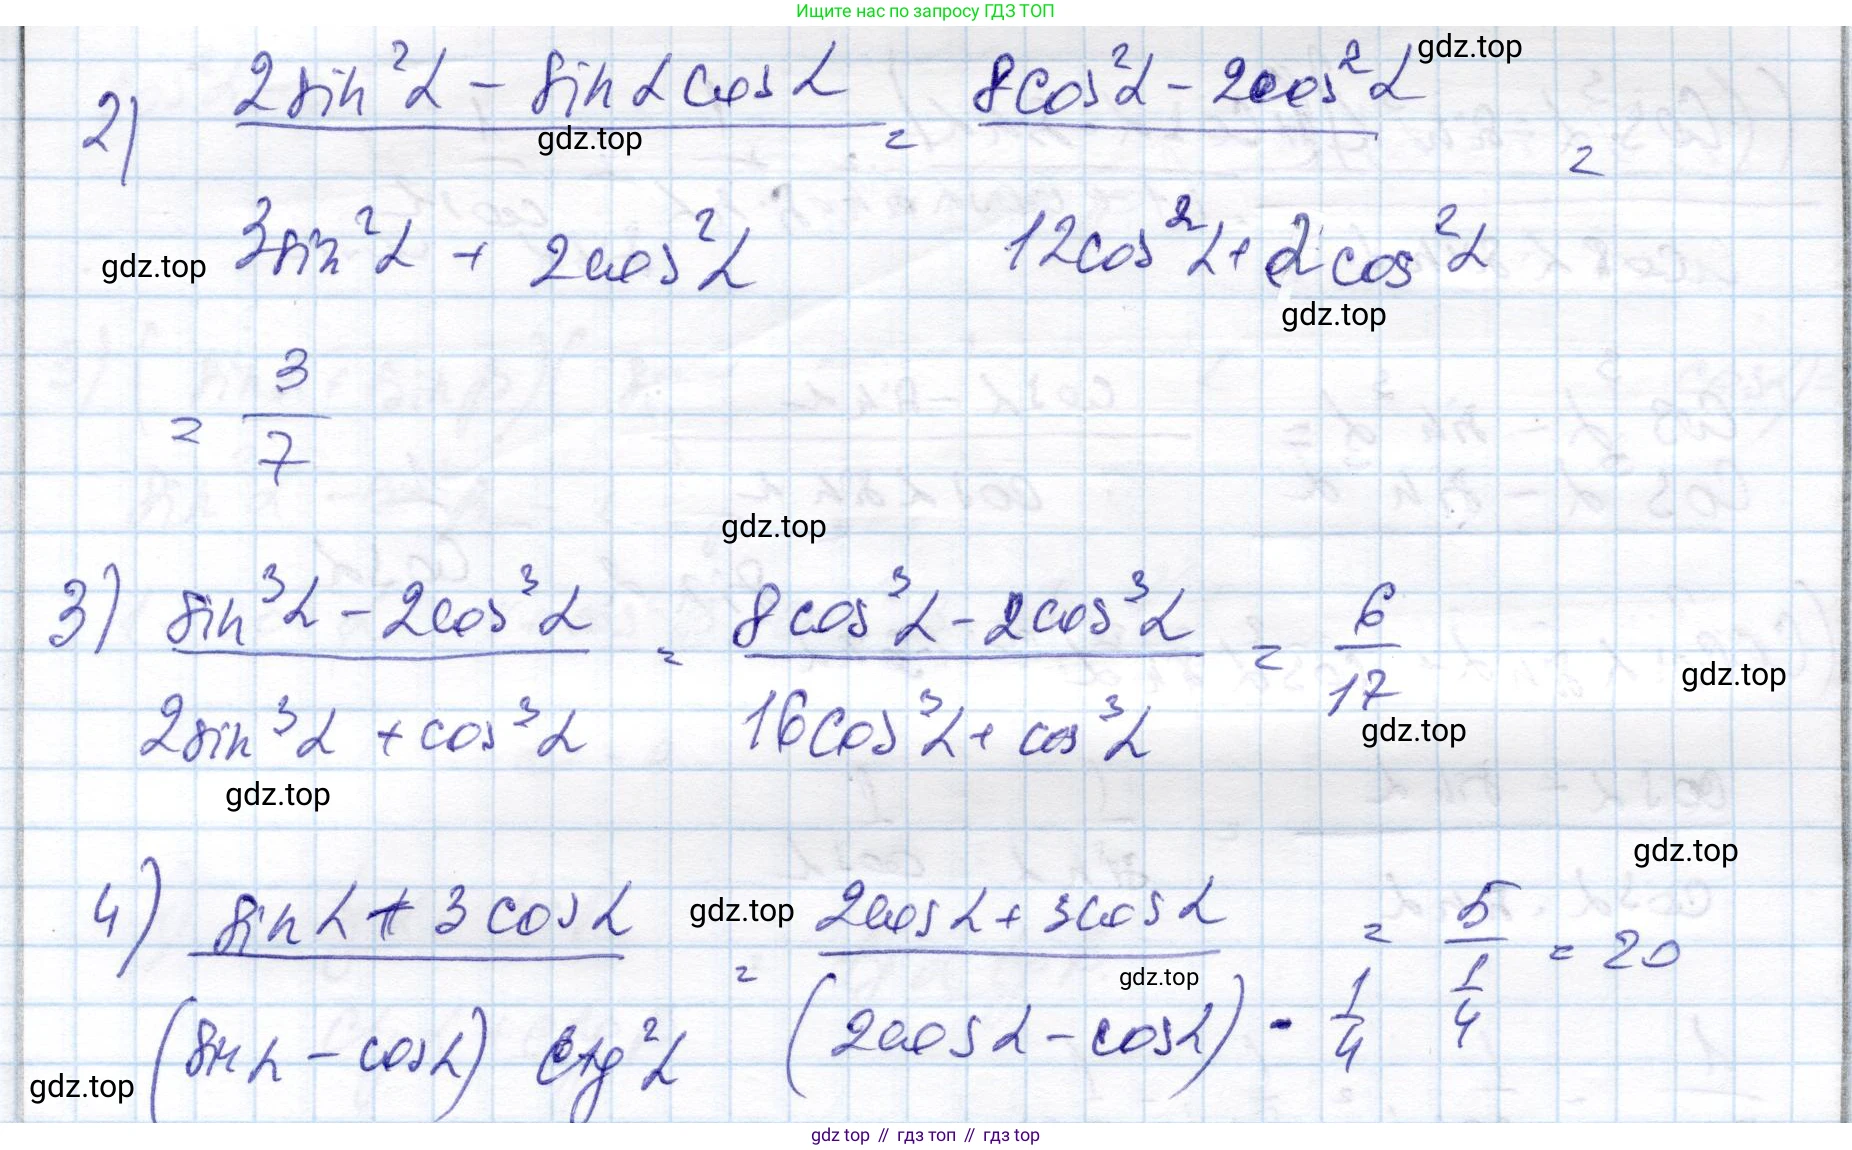 Ищите нас по запросу ГДЗ ТОП
gdz.top
2) (2sin²α - sinα cosα)/(3sin²α + 2cos²α) = (8cos²α - 2cos²α)/(12cos²α + 2cos²α) =
gdz.top
gdz.top
gdz.top
= 3/7
gdz.top
3) (sin³α - 2cos³α)/(2sin³α + cos³α) = (8cos³α - 2cos³α)/(16cos³α + cos³α) = 6/17
gdz.top
gdz.top
gdz.top
gdz.top
4) (sinα + 3cosα)/((sinα - cosα) ctg²α) = (2cosα + 3cosα)/((2cosα - cosα) · 1/4) = 5/(1/4) = 20
gdz.top
gdz.top
gdz.top
gdz top // гдз топ // гдз top